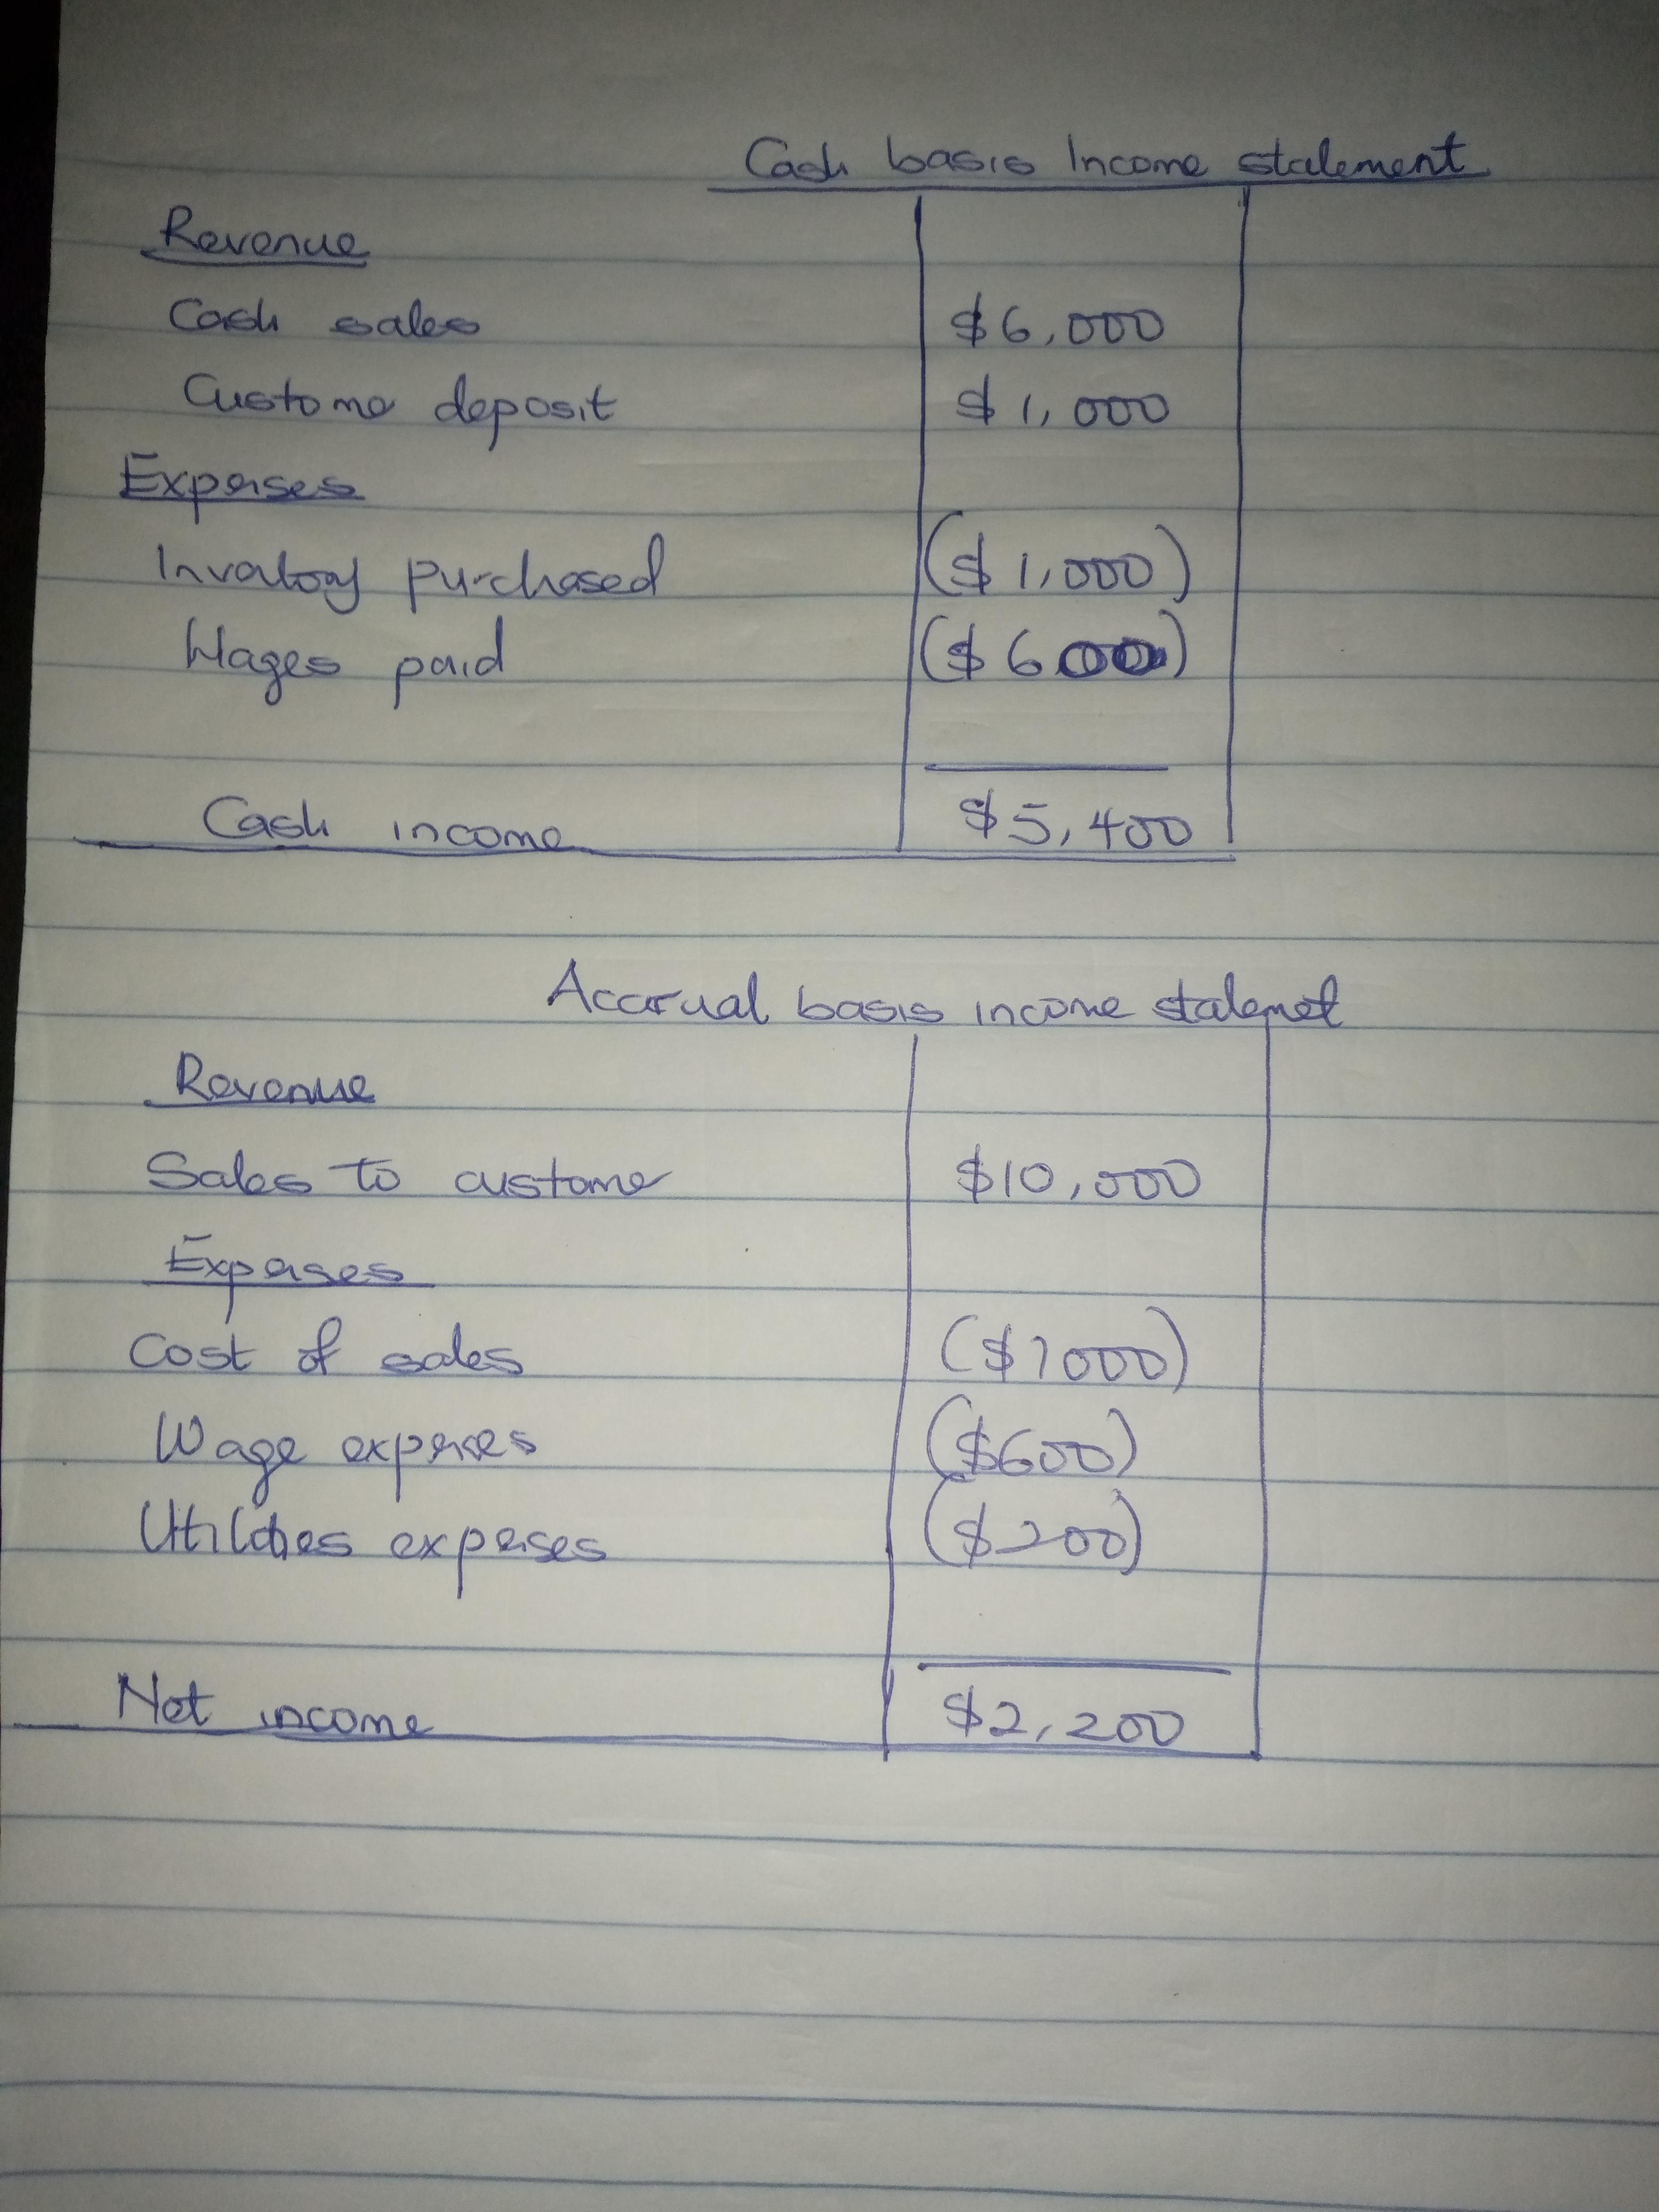 Cash basis Income statement
Revenue
Cash sales $6,000
Customer deposit $1,000
Expenses
Inventory purchased ($1,000)
Wages paid ($600)
Cash income $5,400
Accrual basis income statemet
Revenue
Sales to customer $10,000
Expenses
Cost of sales ($7000)
Wage expenses ($600)
Utilities expenses ($200)
Net income $2,200